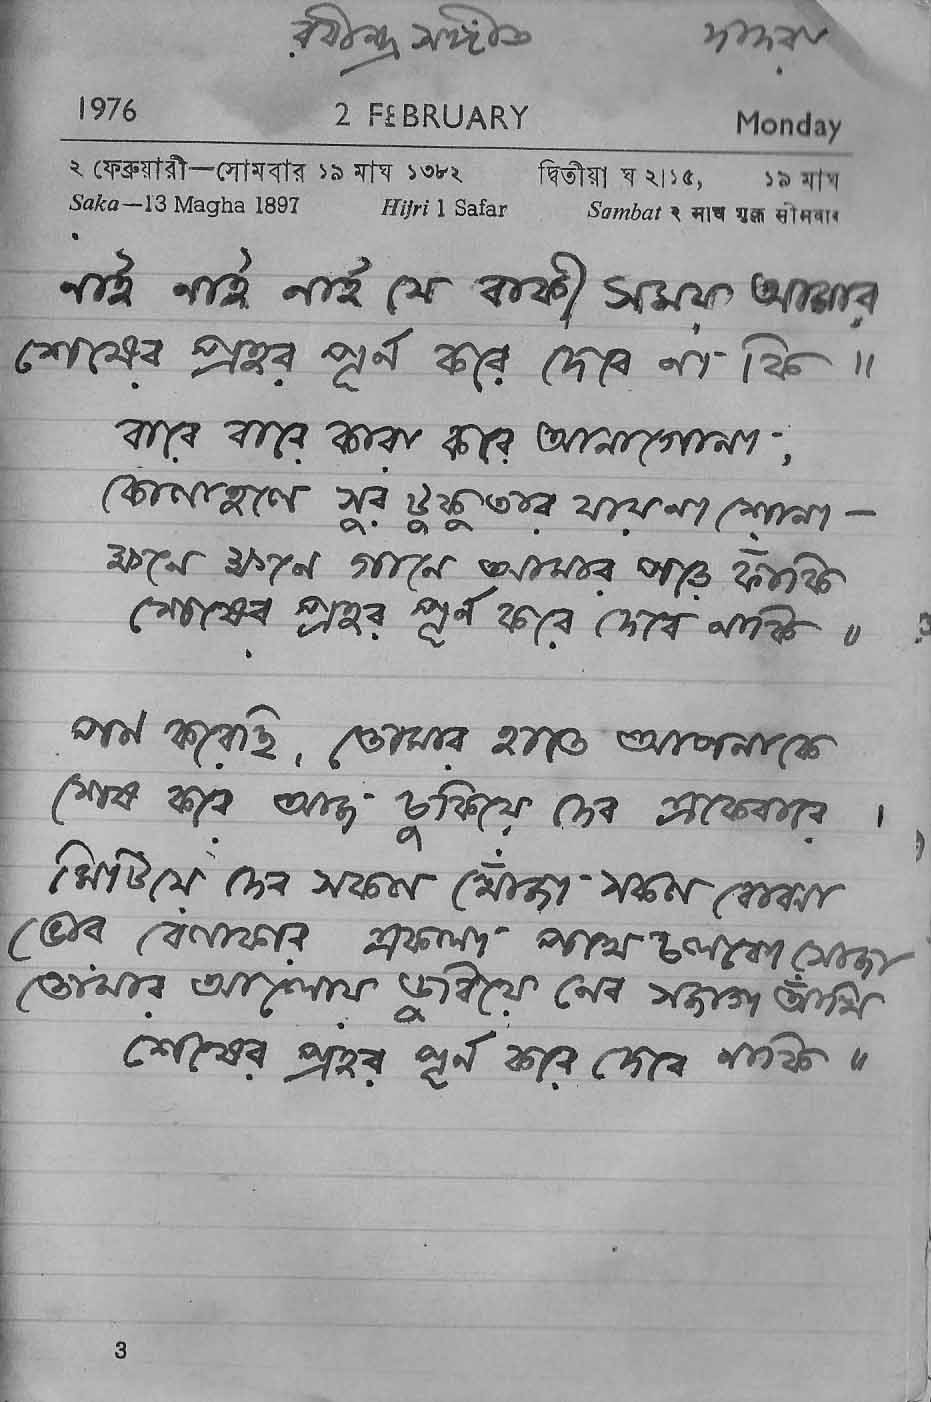 রবীন্দ্র সঙ্গীত দাদরা
1976 2 FEBRUARY Monday
২ ফেব্রুয়ারী—সোমবার ১৯ মাঘ ১৩৮২ দ্বিতীয়া ঘ ২।১৫, ১৯ মাঘ
Saka—13 Magha 1897 Hijri 1 Safar Sambat २ माघ शुक्ल सोमवार
নাই নাই নাই যে বাকী সময় আমার
শেষের প্রহর পূর্ন করে দেবে না কি ॥
বারে বারে কারা করে আনাগোনা,
কোলাহলে সুর টুকু তার যায়না শোনা —
ক্ষনে ক্ষনে গানে আমার পড়ে ফাঁকি
শেষের প্রহর পূর্ন করে দেবে নাকি ॥
পন করেছি, তোমার হাতে আপনাকে
শেষ করে আজ চুকিয়ে দেব একেবারে ।
মিটিয়ে দেব সকল খোঁজা সকল বোঝা
ভোর বেলাকার একলা পথে চলবো সোজা
তোমার আলোয় ডুবিয়ে নেব সজাগ আঁখি
শেষের প্রহর পূর্ন করে দেবে নাকি ॥
3